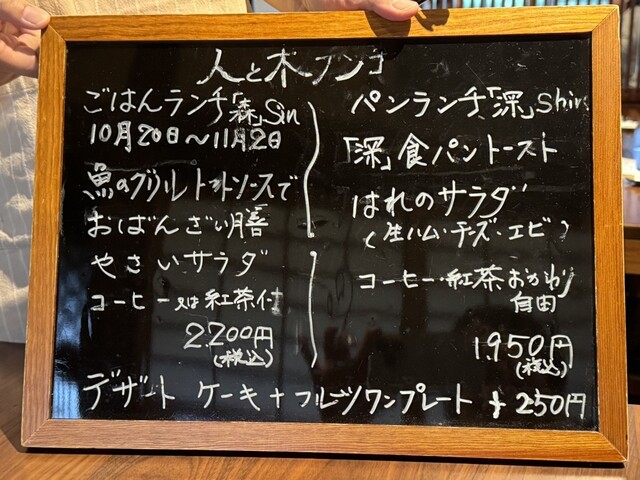 人と木フンゴ
ごはんランチ「森」Sin
10月20日〜11月2日
魚のグリルトマトソースで
おばんざい膳
やさいサラダ
コーヒー又は紅茶付
2.200円
(税込)
パンランチ「深」Shin
「深」食パントースト
はれのサラダ
(生ハム・チーズ・エビ)
コーヒー・紅茶おかわり
自由
1.950円
(税込)
デザート ケーキ+フルーツワンプレート +250円